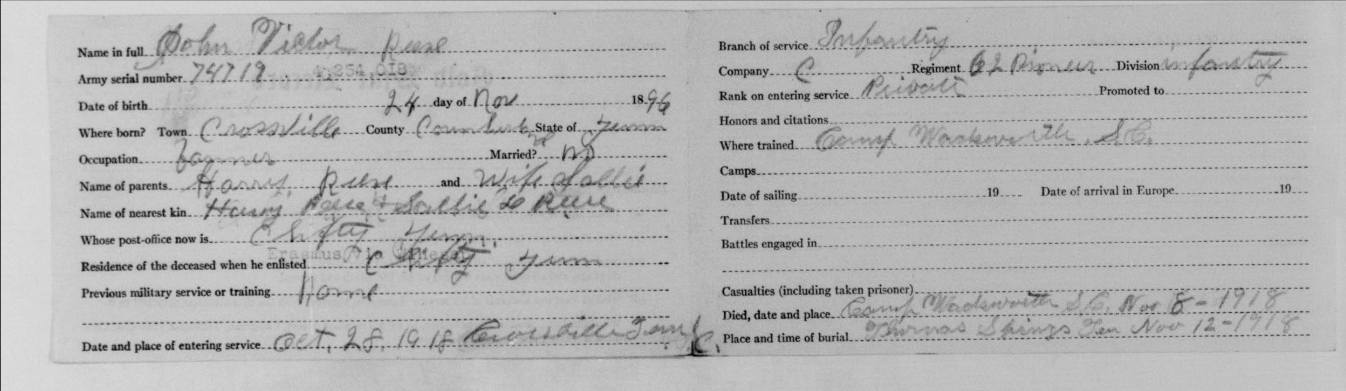 Name in full John Victor Rose
Army serial number 74719
Date of birth 24 day of Nov 1896
Where born? Town Crossville County Cumberland State of Tenn
Occupation farmer Married? no
Name of parents Harry and Wife Sallie
Name of nearest kin Harry & Sallie
Whose post-office now is Clifty Tenn.
Erasmus, via
Residence of the deceased when he enlisted Clifty Tenn
Previous military service or training
Date and place of entering service Oct, 28, 1918 Crossville Tenn
Branch of service Infantry
Company C Regiment 62 Pioneer Division infantry
Rank on entering service Private Promoted to
Honors and citations
Where trained Camp Wadsworth, S.C.
Camps
Date of sailing 19 Date of arrival in Europe 19
Transfers
Battles engaged in
Casualties (including taken prisoner)
Died, date and place Camp Wadsworth S.C. Nov 8-1918
Place and time of burial Thomas Springs Ten Nov 12-1918